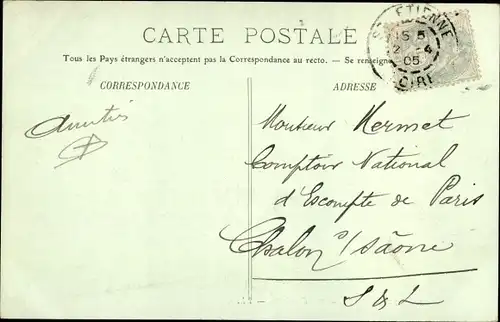 CARTE POSTALE
Tous les Pays étrangers n'acceptent pas la Correspondance au recto. — Se renseigne
CORRESPONDANCE
ADRESSE
ETIENNE
15 5
2 - 4
05
Amitiés
Monsieur Hermet
Comptoir National
d'Escompte de Paris
Chalon s/saône
S & L